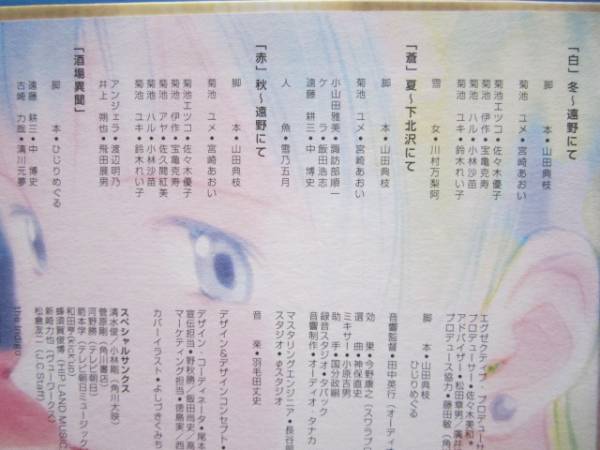 「白」冬～遠野にて
脚　本・山田典枝
菊池　ユメ・宮崎あおい
菊池エツコ・佐々木優子
菊池　伊作・宝亀克寿
菊池　ハル・小林沙苗
菊池　ユキ・鈴木れい子
雪　女・川村万梨阿
「蒼」夏～下北沢にて
脚　本・山田典枝
菊池　ユメ・宮崎あおい
小山田雅美・諏訪部順一
ケ　ラ・飯田浩志
遠藤　耕三・中　博史
人　魚・雪乃五月
「赤」秋～遠野にて
脚　本・山田典枝
菊池　ユメ・宮崎あおい
菊池エツコ・佐々木優子
菊池　伊作・宝亀克寿
菊池　アヤ・佐久間紅美
菊池　ハル・小林沙苗
菊池　ユキ・鈴木れい子
アンジェラ・渡辺明乃
井上　朔也・飛田展男
「酒場異聞」
脚　本・ひじりめぐる
遠藤　耕三・中　博史
古崎　力哉・清川元夢
エグゼクティブ・プロデューサー
プロデューサー・佐々木美和・
アドバイザー・松田章男/廣井
プロデュース協力・藤田敏(角
脚　本・山田典枝
ひじりめぐる
音響監督・田中英行(オーディオ
効　果・今野康之(スワラプロ
選　曲・神保直史
ミキサー・小原吉男
助　手・国分政嗣
録音スタジオ・タバック
音響制作・オーディオ・タナカ
マスタリングエンジニア・長谷部
スタジオ・
音　楽・羽毛田丈史
デザイン&デザインコンセプト・
デザイン・コーディネータ・尾本
宣伝担当・野秋勝/飯田尚史/高
マーケティング担当・徳島実/西
カバーイラスト・よしづきくみち
スペシャルサンクス
清水俊/小林剛(角川大映
菅原剛(角川書店)
河野勝(テレビ朝日)
箭本学(テレビ朝日ミュージック
和田亨
蜂須賀俊博(HIP LAND MUSIC
新崎力也(ヴューワークス)
松倉友二(J.C.Staff)
the indigo